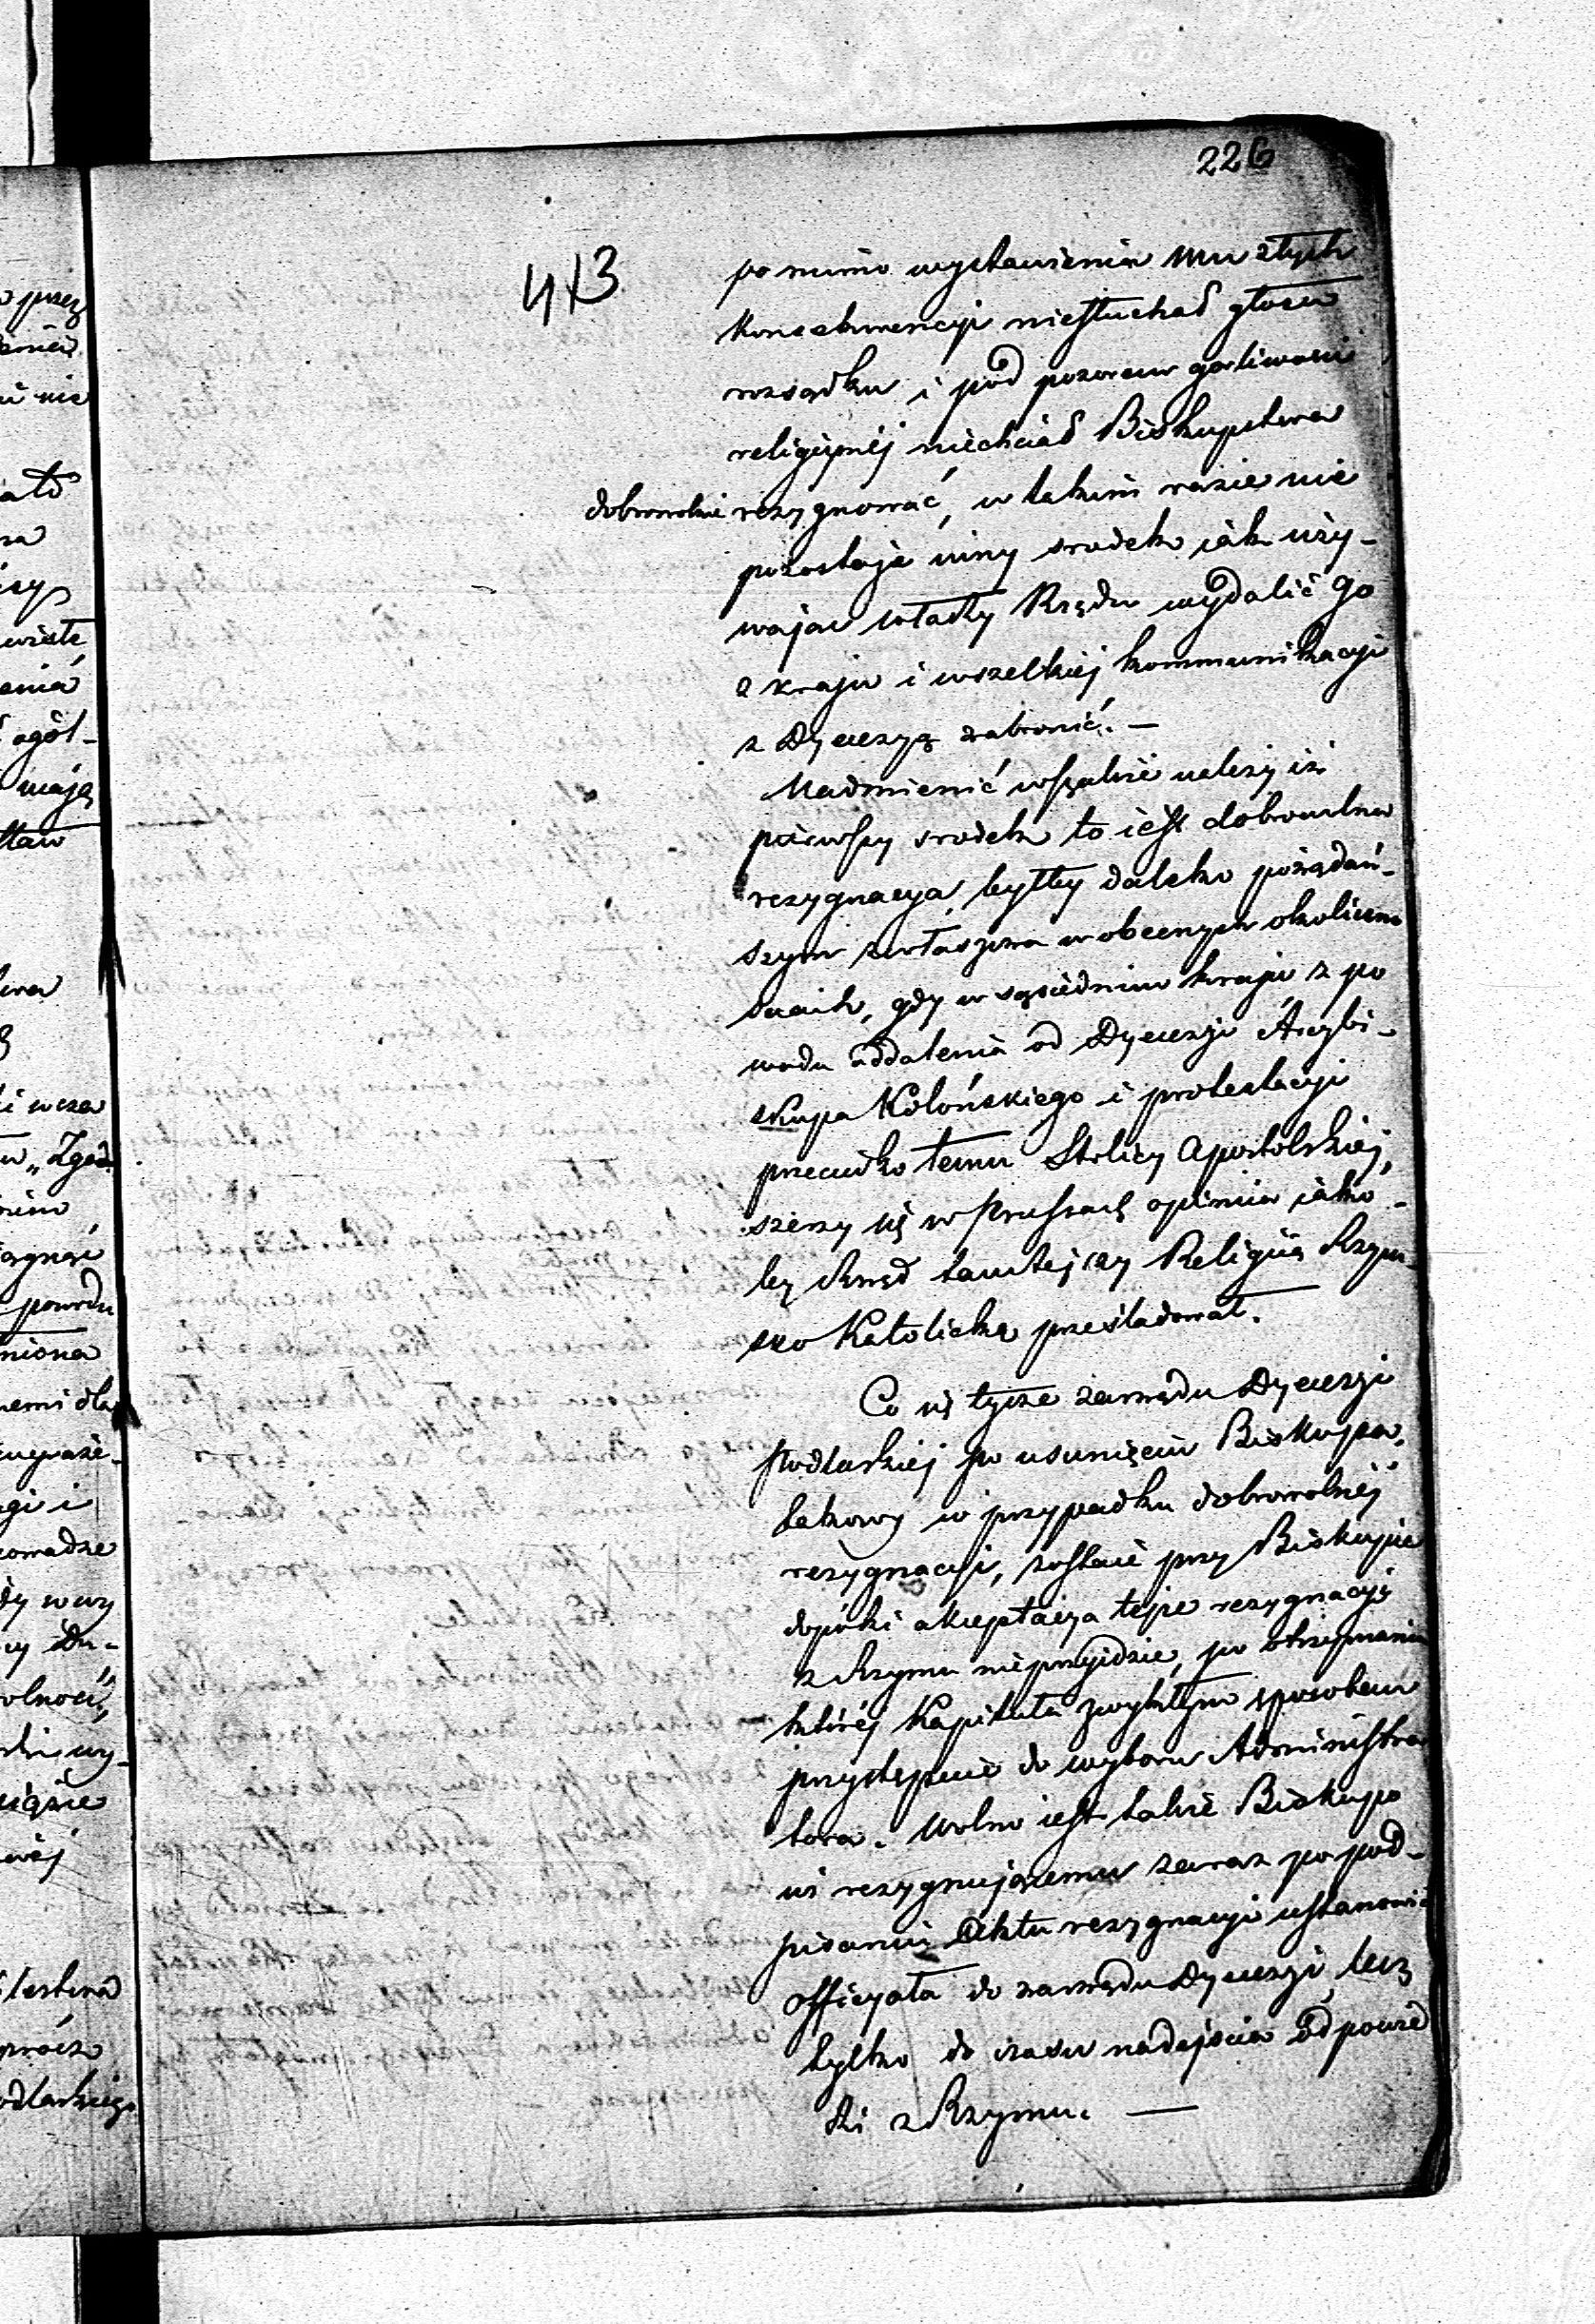 226
413
pomimo wystawienia mu złych
konsekwencyi niesłuchał głosu
rozsądku i pod pozorem gorliwości
religijnéj niechciał Biskupstwa
dobrowolnie rezygnować, w takim razie nie
pozostaje inny srodek iak uży-
wając władzy Rządu wydalić go
z kraju i wszelkiéj kommunikacyi
z Dyecezyą zabronić. —
Nadmienić wszakże należy iż
pierwszy srodek to iest dobrowolna
rezygnacya, byłby daleko pożądań-
szym zwłaszcza w obecnych okoliczno
sciach, gdy w sąsiednim kraju z po
wodu oddalenia od Dyecezji Arcybi-
skupa Kolońskiego i protestacyi
przeciwko temu Stolicy Apostolskiéj,
szerzy się w Prussach opinia iako-
by Rząd tamtejszy Religią Rzym-
sko Katolicką prześladował.
Co się tycze zarządu Dyecezji
Podlaskiéj po usunięciu Biskupa,
takowy w przypadku dobrowolnéj
rezygnacyi, zostanie przy Biskupie
dopóki akceptacya téjże rezygnacyi
z Rzymu nieprzyjdzie, po otrzymaniu
któréj Kapituła zwykłym sposobem
przystąpi do wyboru Administra
tora. Wolno iest także Biskupo
wi rezygnującemu zaraz po pod-
pisaniu Aktu rezygnacyi ustanowić
Officyała do zarządu Dyecezji, lecz
tylko do czasu nadejścia odpowie
dzi z Rzymu. —